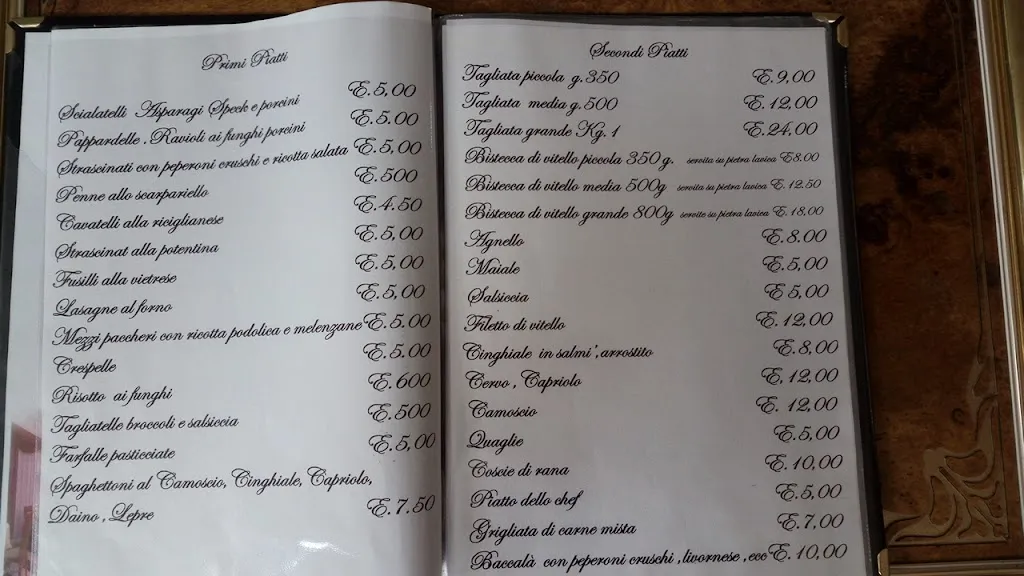 Primi Piatti
Scialatelli Asparagi Speck e porcini E.5,00
Pappardelle . Ravioli ai funghi porcini E.5.00
Strascinati con peperoni cruschi e ricotta salata E.5,00
Penne allo scarpariello E.500
Cavatelli alla riciglianese E.4.50
Strascinat alla potentina E.5,00
Fusilli alla vietrese E.5,00
Lasagne al forno E.5,00
Mezzi paccheri con ricotta podolica e melenzane E.5.00
Crespelle E.5.00
Risotto ai funghi E.600
Tagliatelle broccoli e salsiccia E.500
Farfalle pasticciate E.5,00
Spaghettoni al Camoscio, Cinghiale, Capriolo,
Daino , Lepre E.7.50
Secondi Piatti
Tagliata piccola g.350 E.9,00
Tagliata media g.500 E.12,00
Tagliata grande Kg.1 E.24,00
Bistecca di vitello piccola 350 g. servita su pietra lavica E8.00
Bistecca di vitello media 500g servita su pietra lavica E. 12.50
Bistecca di vitello grande 800g servite su pietra lavica E. 18,00
Agnello E.8.00
Maiale E.5,00
Salsiccia E 5,00
Filetto di vitello E.12,00
Cinghiale in salmi',arrostito E.8,00
Cervo , Capriolo E.12,00
Camoscio E. 12,00
Quaglie E.5,00
Coscie di rana E.10,00
Piatto dello chef E.5,00
Grigliata di carne mista E.7,00
Baccalà con peperoni cruschi ,livornese ,ecc E.10,00